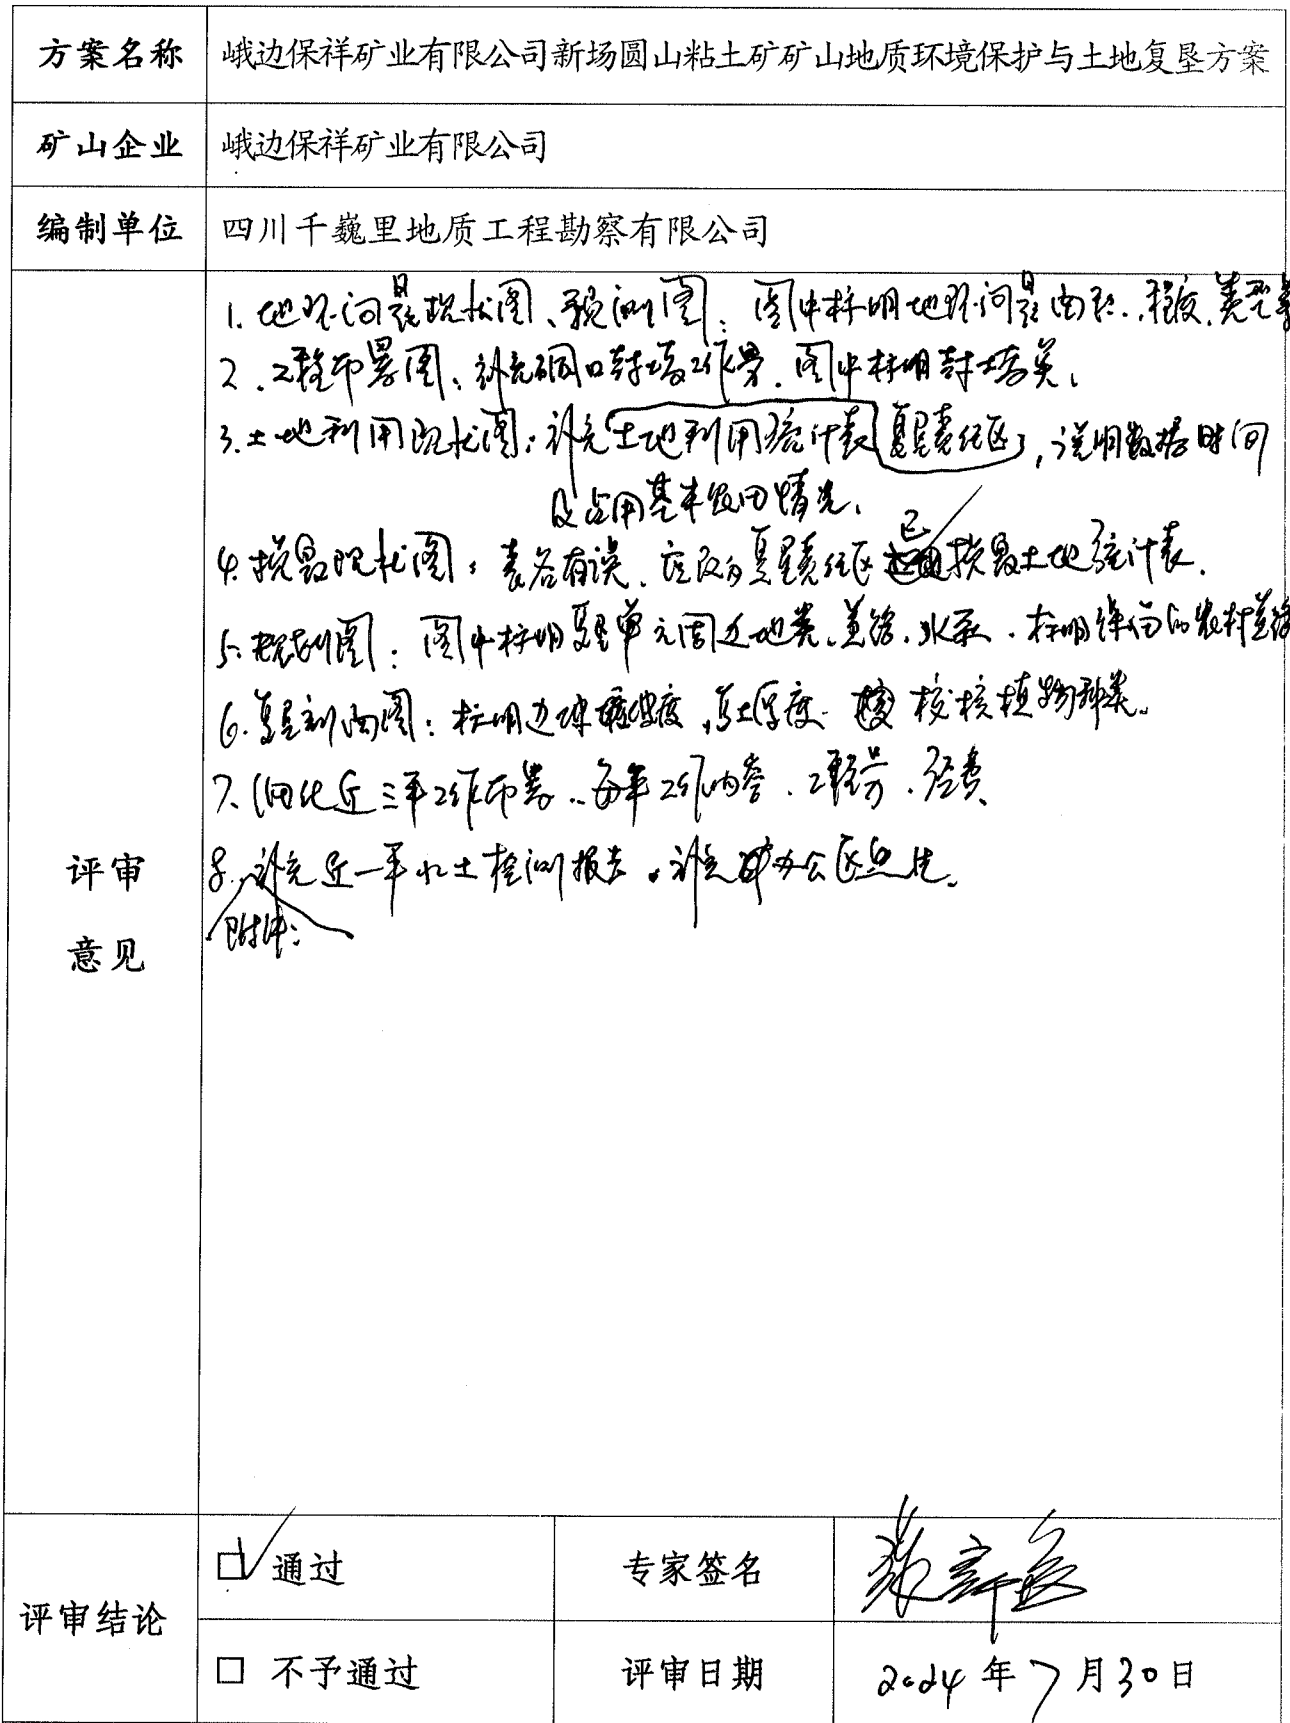 方案名称 峨边保祥矿业有限公司新场圆山粘土矿矿山地质环境保护与土地复垦方案
矿山企业 峨边保祥矿业有限公司
编制单位 四川千巍里地质工程勘察有限公司
1. 地环问题现状图、预测图：图中标明地环问题面积、程度、类型等
2. 工程布署图：补充硐口封堵工作量，图中标明封堵类
3. 土地利用现状图：补充土地利用统计表(复垦责任区)，说明数据时间
及占用基本农田情况。
4. 损毁现状图：表名有误，应改为复垦责任区已损毁土地统计表。
5. 规划图：图中标明复垦单元周边地类、道路、水系，标明保留的农村道路
6. 复垦剖面图：标明边坡坡度，覆土厚度，校核植物种类。
7. 细化近三年工作布署，每年工作内容、工程量、经费
8. 补充近一年水土检测报告。补充办公区照片。
附件：
评审
意见
评审结论
通过
专家签名
不予通过
评审日期
2024年7月30日